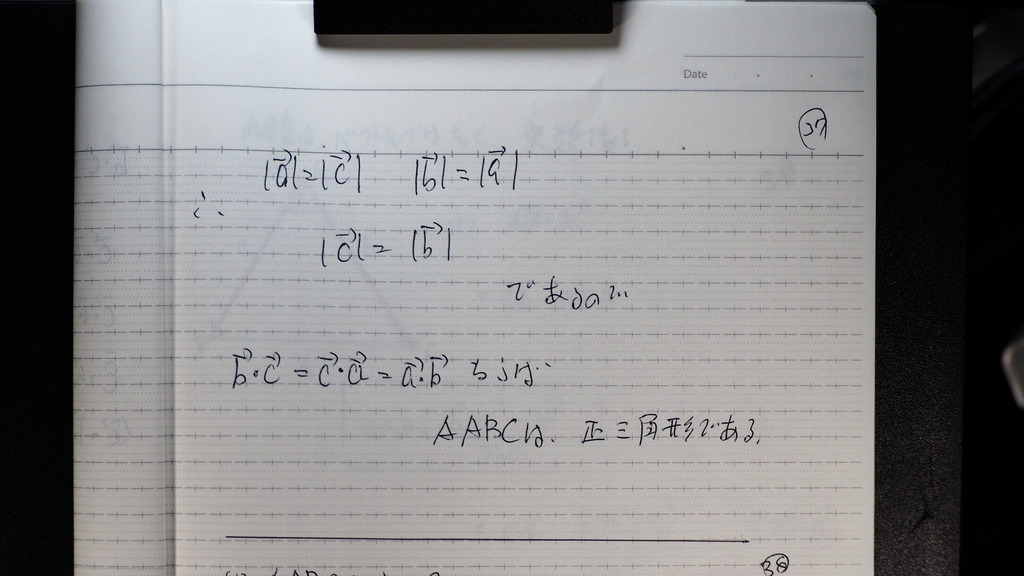 Date
㊲
|a⃗|=|c⃗| |b⃗|=|a⃗|
∴
|c⃗|=|b⃗|
であるので
b⃗・c⃗=c⃗・a⃗=a⃗・b⃗ ならば
△ABCは、正三角形である。
㊳